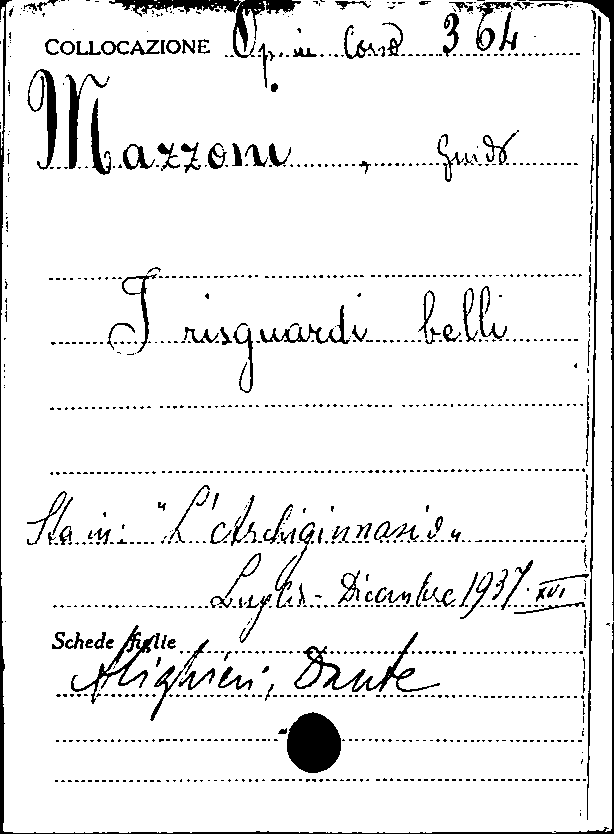 COLLOCAZIONE Op. in Corso 364
Mazzoni, Guido
I risguardi belli
Sta in: "L'Archiginnasio„
Luglio - Dicembre 1937. XVI
Schede figlie
Alighieri, Dante